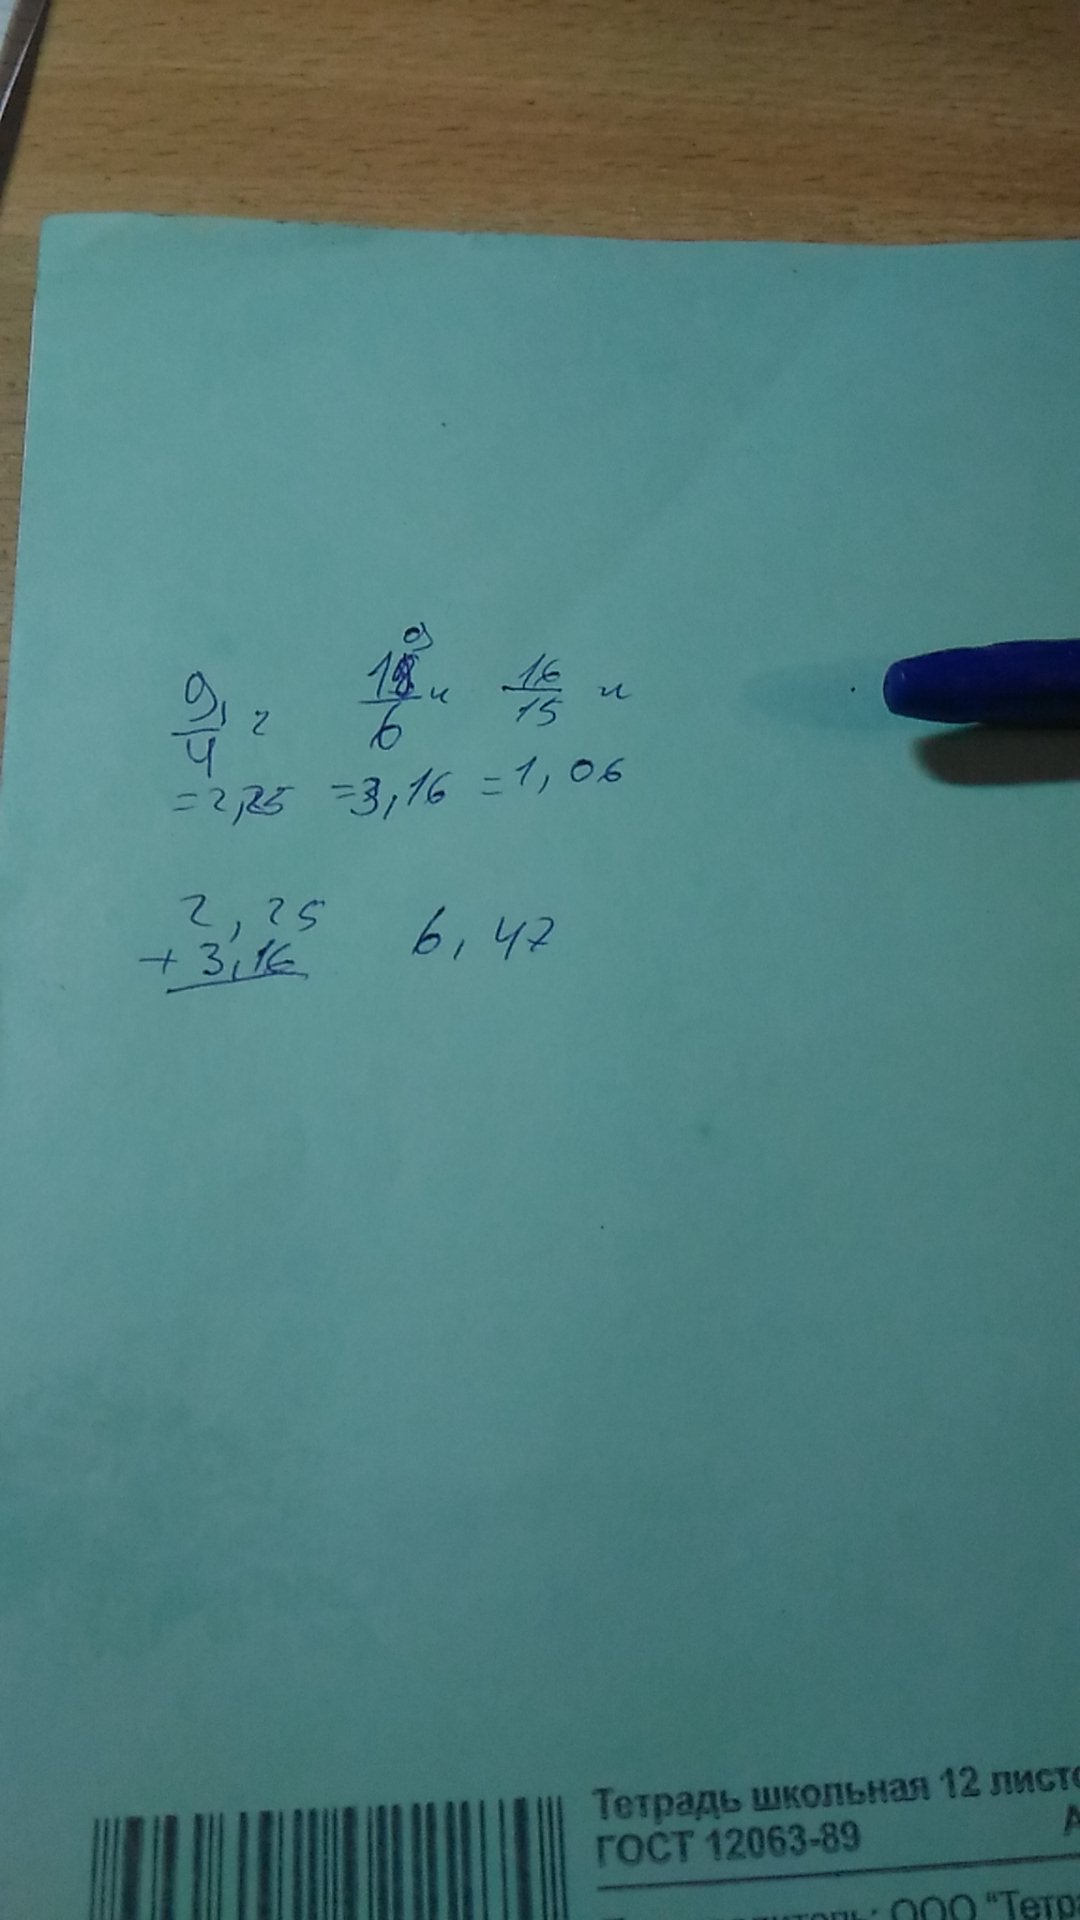 9
4
19
6
16
15
= 2,25 = 3,16 = 1,06
2,25
+ 3,16
6,47
Тетрадь школьная 12 листо
ГОСТ 12063-89
ООО "Тетр